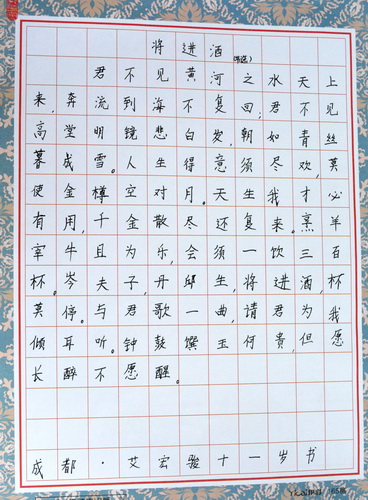 将进酒(节选)
君不见黄河之水天上
来,奔流到海不复回;君不见
高堂明镜悲白发,朝如青丝
暮成雪。人生得意须尽欢,莫
使金樽空对月。天生我才必
有用,千金散尽还复来。烹羊
宰牛且为乐,会须一饮三百
杯。岑夫子,丹邱生,将进酒,杯
莫停。与君歌一曲,请君为我
倾耳听。钟鼓馔玉何贵,但愿
长醉不愿醒。
成都·艾宏骏十一岁书